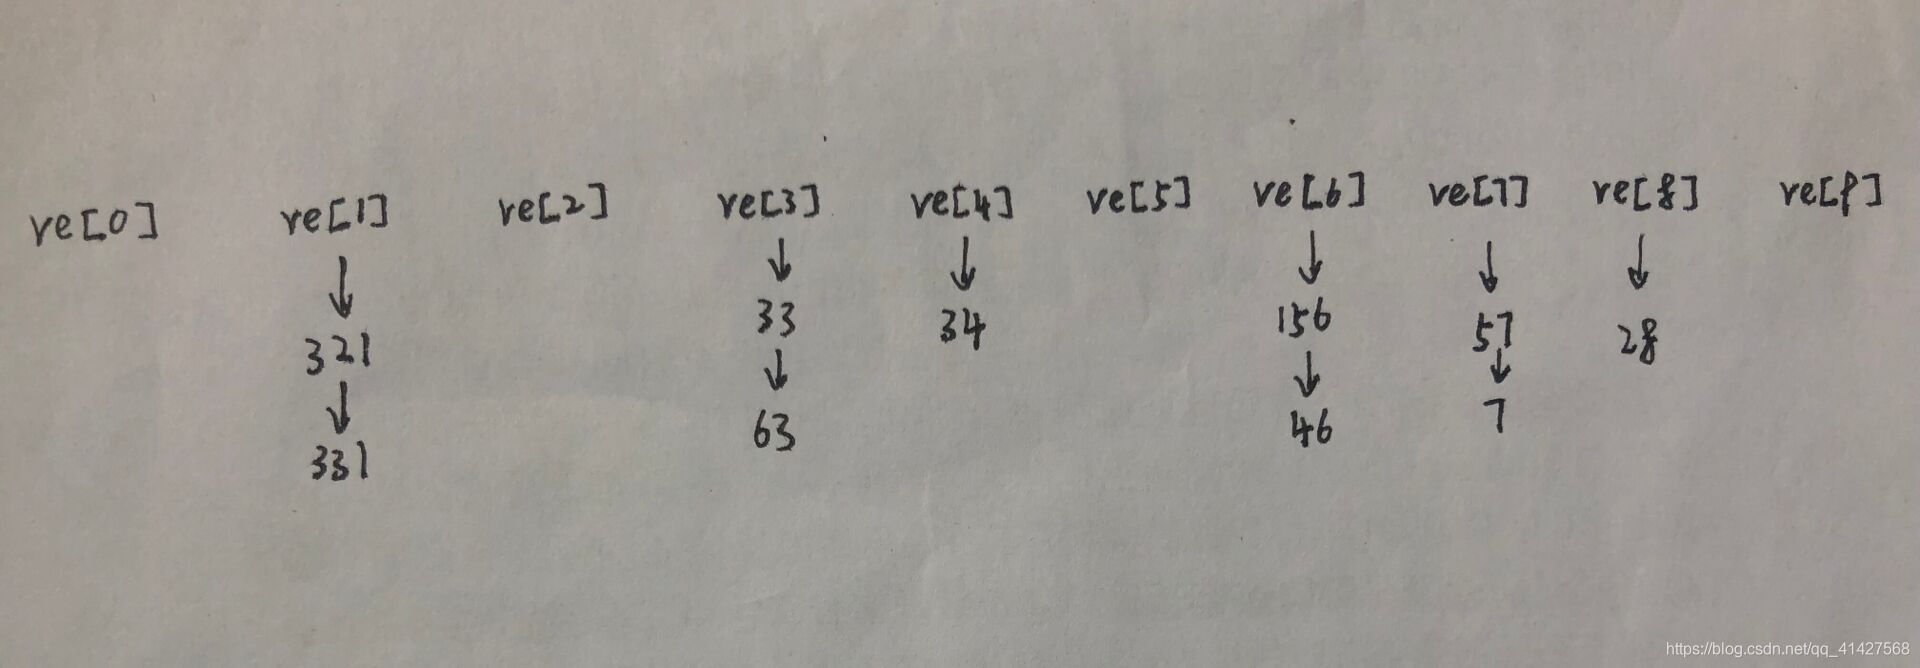 ve[0] ve[1] ve[2] ve[3] ve[4] ve[5] ve[6] ve[7] ve[8] ve[9]
↓ ↓ ↓ ↓ ↓ ↓
321 33 34 156 57 28
↓ ↓ ↓ ↓
331 63 46 7
https://blog.csdn.net/qq_41427568